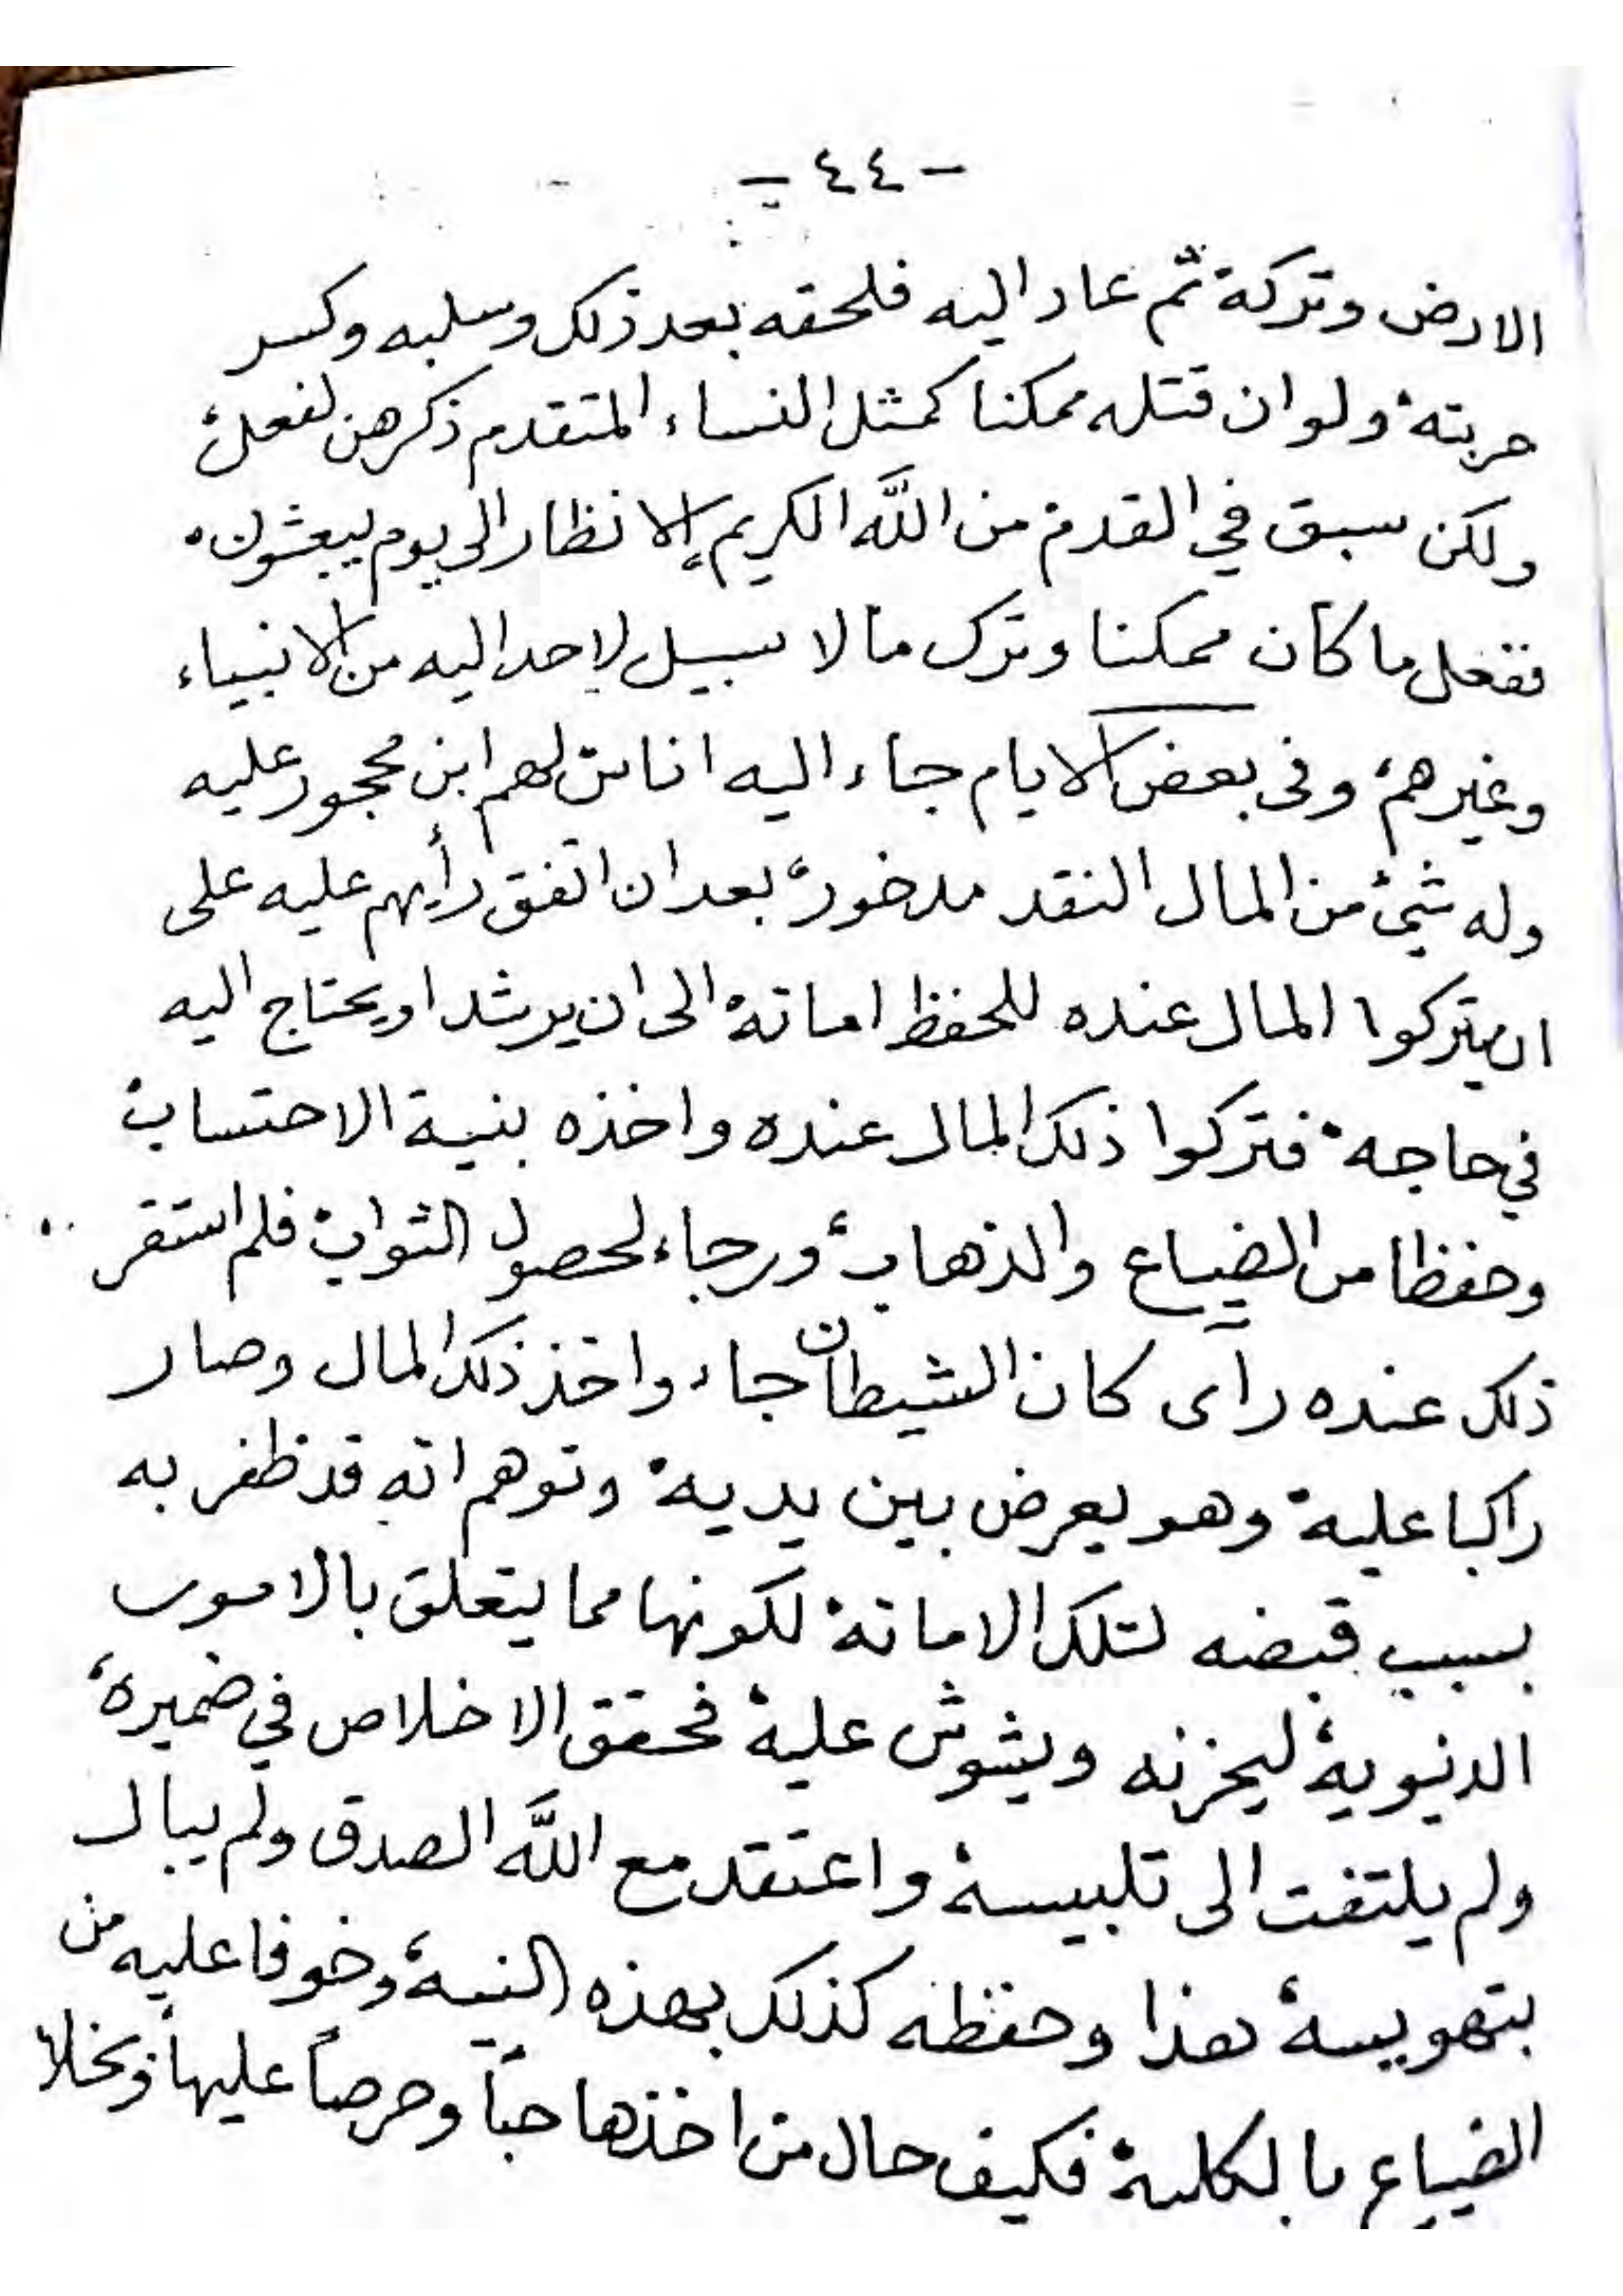 - ٤٤ -
الارض وتركة ثم عاد اليه فلحقه بعد ذلك وسلبه وكسر
حربتة ولو ان قتله ممكنا كمثل النساء المتقدم ذكرهن لفعل،
ولكن سبق في القدم من اللّه الكريم الانظار الى يوم يبعثون.
ففعل ما كان ممكنا وترك ما لا سبيل لاحد اليه من الانبياء
وغيرهم، وفى بعض الايام جاء اليه اناس لهم ابن محجور عليه
وله شئ من المال النقد مدخور، بعد ان اتفق رأيهم عليه على
ان يتركوا المال عنده للحفظ امانة الى ان يرشد او يحتاج اليه
في حاجه فتركوا ذلك المال عنده واخذه بنية الاحتساب
وحفظا من الضياع والذهاب، ورجاء لحصول الثواب فلم استقر
ذلك عنده رآى كان الشيطان جاء واخذ ذلك المال وصار
راكبا علية وهو يعرض بين يدية وتوهم انه قد ظفر به
بسبب قبضه لتلك الامانة لكونها مما يتعلق بالامور
الدنيوية ليحزنه ويشوش علية فحقق الاخلاص في ضميرة،
ولم يلتفت الى تلبيسة واعتقد مع اللَّه الصدق ولم يبال
بتهويسة هذا وحفظه كذلك بهذه النية، وخوفا عليه من
الضياع بالكلية فكيف حال من اخذها حباً وحرصاً عليها وبخلا